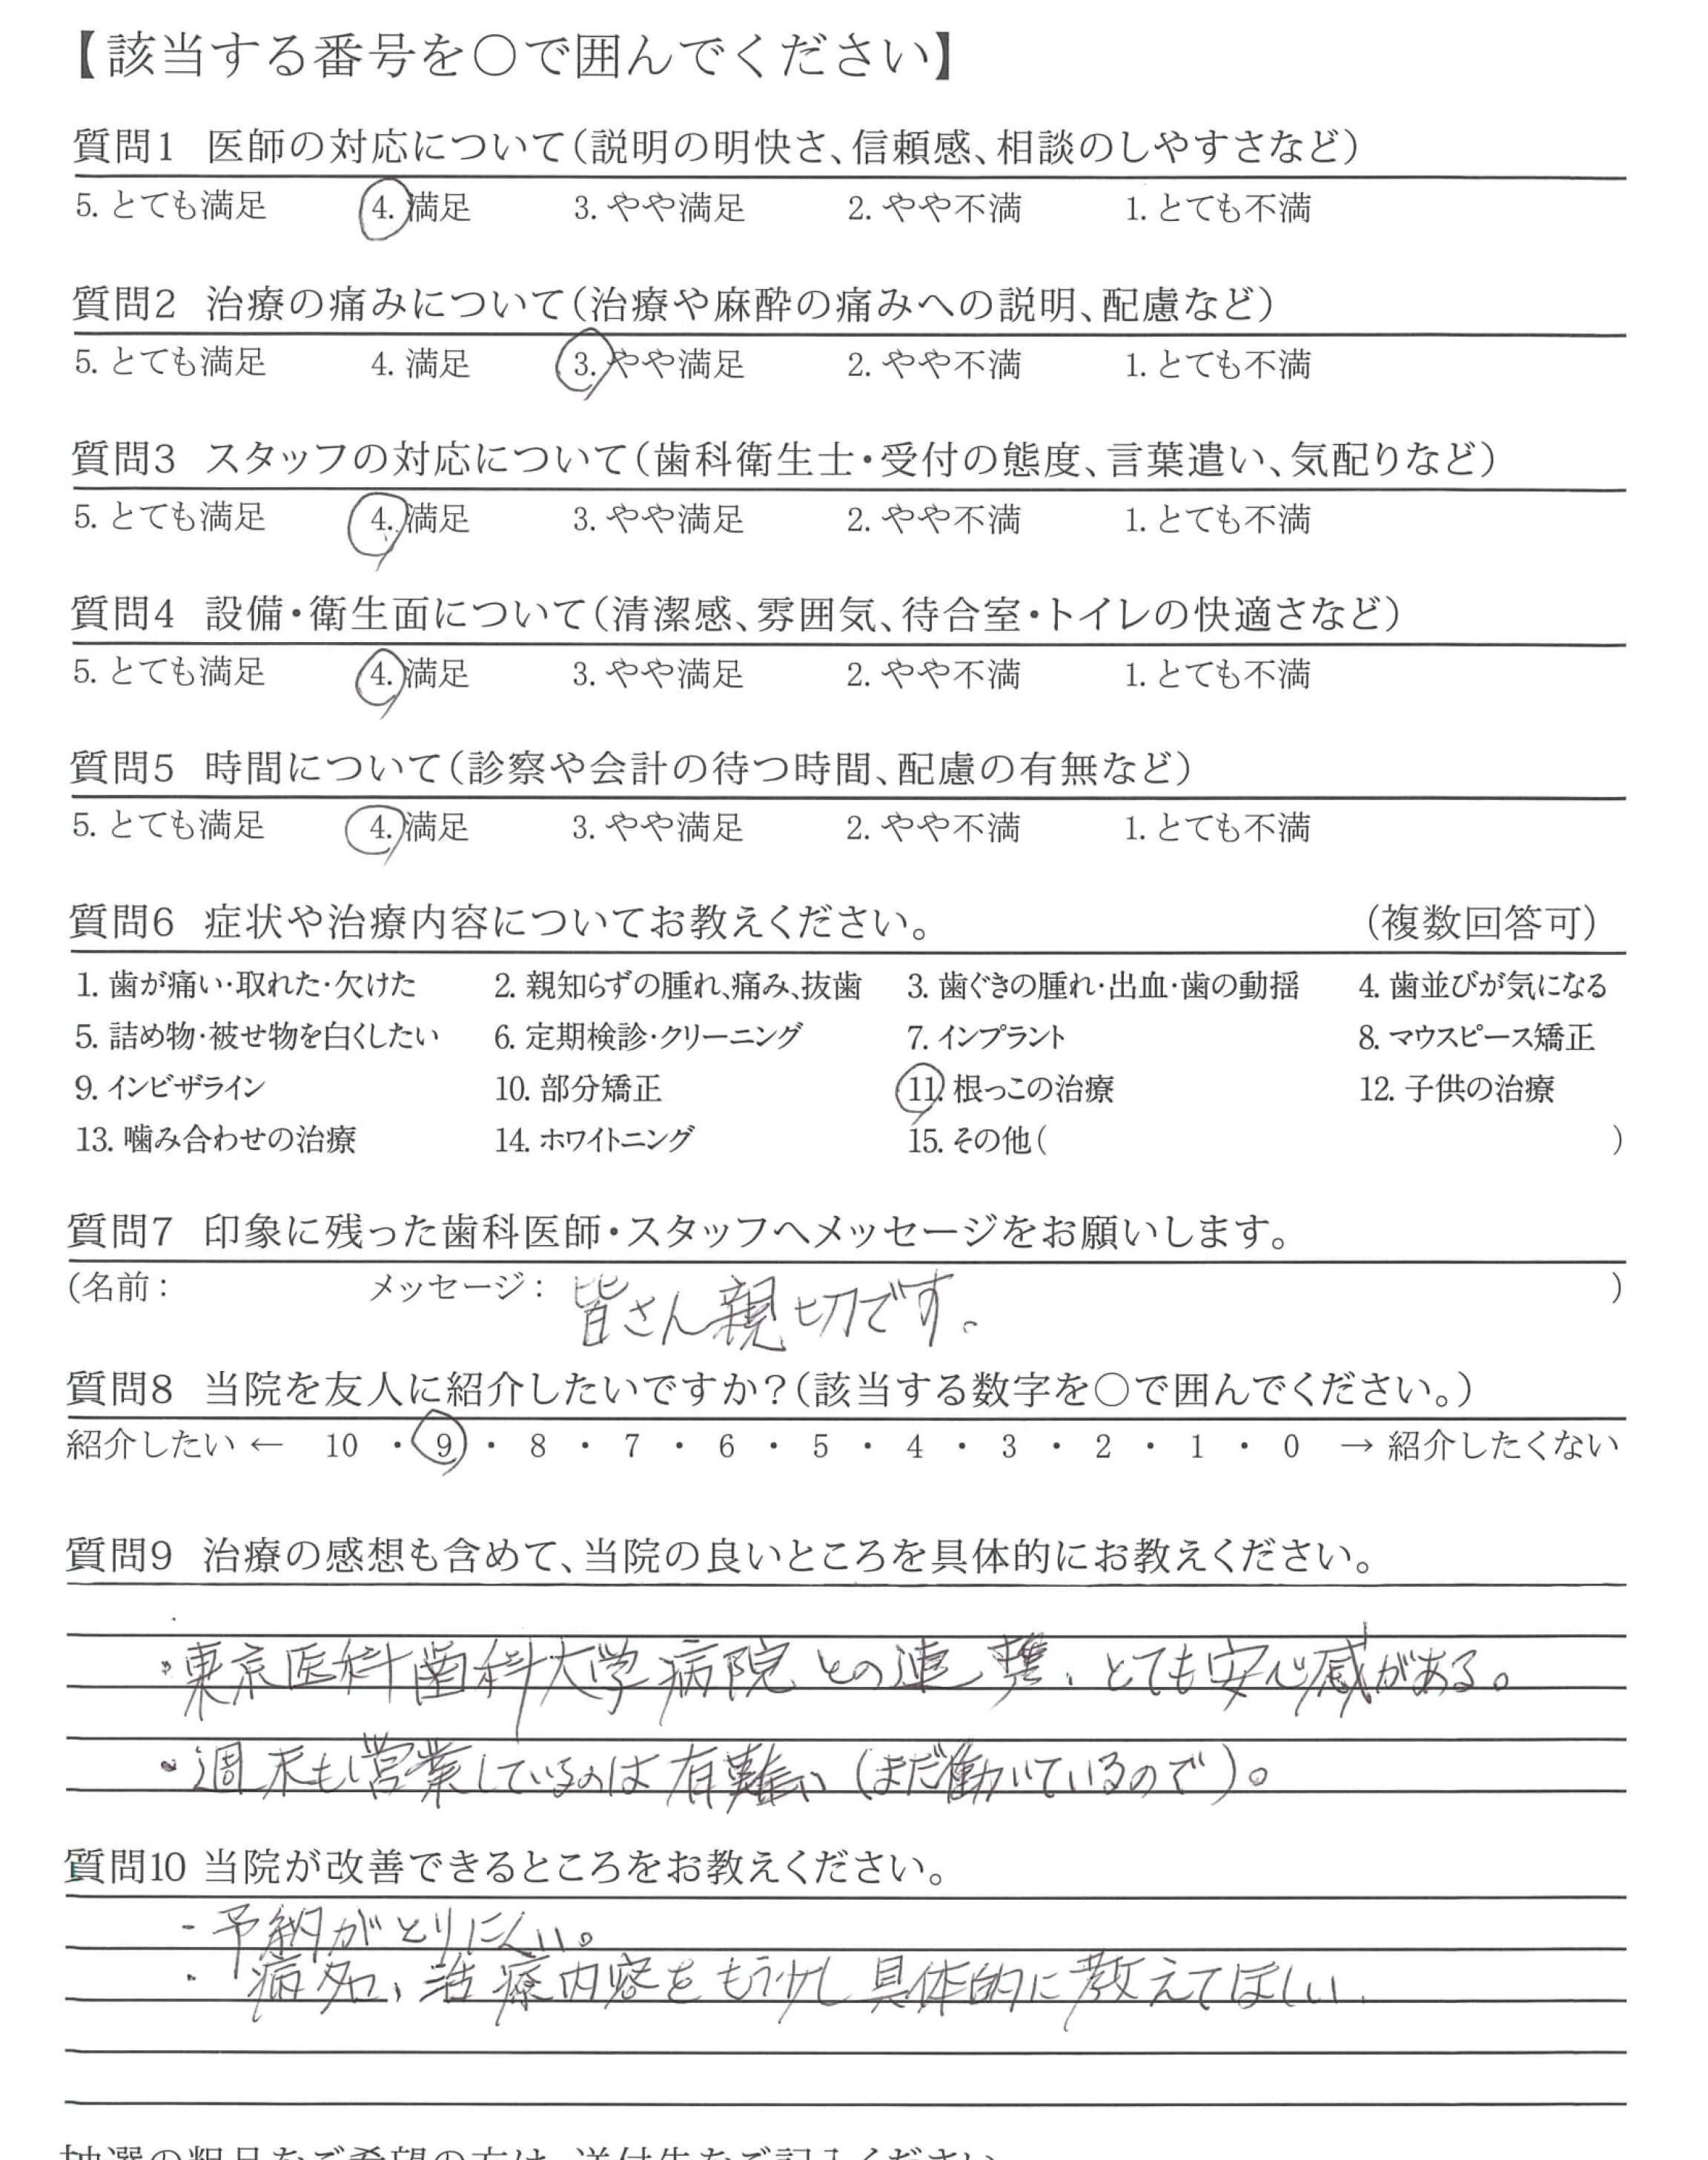 【該当する番号を○で囲んでください】
質問1 医師の対応について（説明の明快さ、信頼感、相談のしやすさなど）
5. とても満足 4. 満足 3. やや満足 2. やや不満 1. とても不満
質問2 治療の痛みについて（治療や麻酔の痛みへの説明、配慮など）
5. とても満足 4. 満足 3. やや満足 2. やや不満 1. とても不満
質問3 スタッフの対応について（歯科衛生士・受付の態度、言葉遣い、気配りなど）
5. とても満足 4. 満足 3. やや満足 2. やや不満 1. とても不満
質問4 設備・衛生面について（清潔感、雰囲気、待合室・トイレの快適さなど）
5. とても満足 4. 満足 3. やや満足 2. やや不満 1. とても不満
質問5 時間について（診察や会計の待つ時間、配慮の有無など）
5. とても満足 4. 満足 3. やや満足 2. やや不満 1. とても不満
質問6 症状や治療内容についてお教えください。 （複数回答可）
1. 歯が痛い・取れた・欠けた 2. 親知らずの腫れ、痛み、抜歯 3. 歯ぐきの腫れ・出血・歯の動揺 4. 歯並びが気になる
5. 詰め物・被せ物を白くしたい 6. 定期検診・クリーニング 7. インプラント 8. マウスピース矯正
9. インビザライン 10. 部分矯正 11. 根っこの治療 12. 子供の治療
13. 噛み合わせの治療 14. ホワイトニング 15. その他（ ）
質問7 印象に残った歯科医師・スタッフへメッセージをお願いします。
（名前： メッセージ： 皆さん親切です。 ）
質問8 当院を友人に紹介したいですか？（該当する数字を○で囲んでください。）
紹介したい ← 10 ・ 9 ・ 8 ・ 7 ・ 6 ・ 5 ・ 4 ・ 3 ・ 2 ・ 1 ・ 0 → 紹介したくない
質問9 治療の感想も含めて、当院の良いところを具体的にお教えください。
・東京医科歯科大学病院との連携、とても安心感がある。
・週末も営業しているのは有難い（まだ働いているので）。
質問10 当院が改善できるところをお教えください。
・予約がとりにくい。
・病名、治療内容をもう少し具体的に教えてほしい
抽選の粗品をご希望の方は、送付先をご記入ください